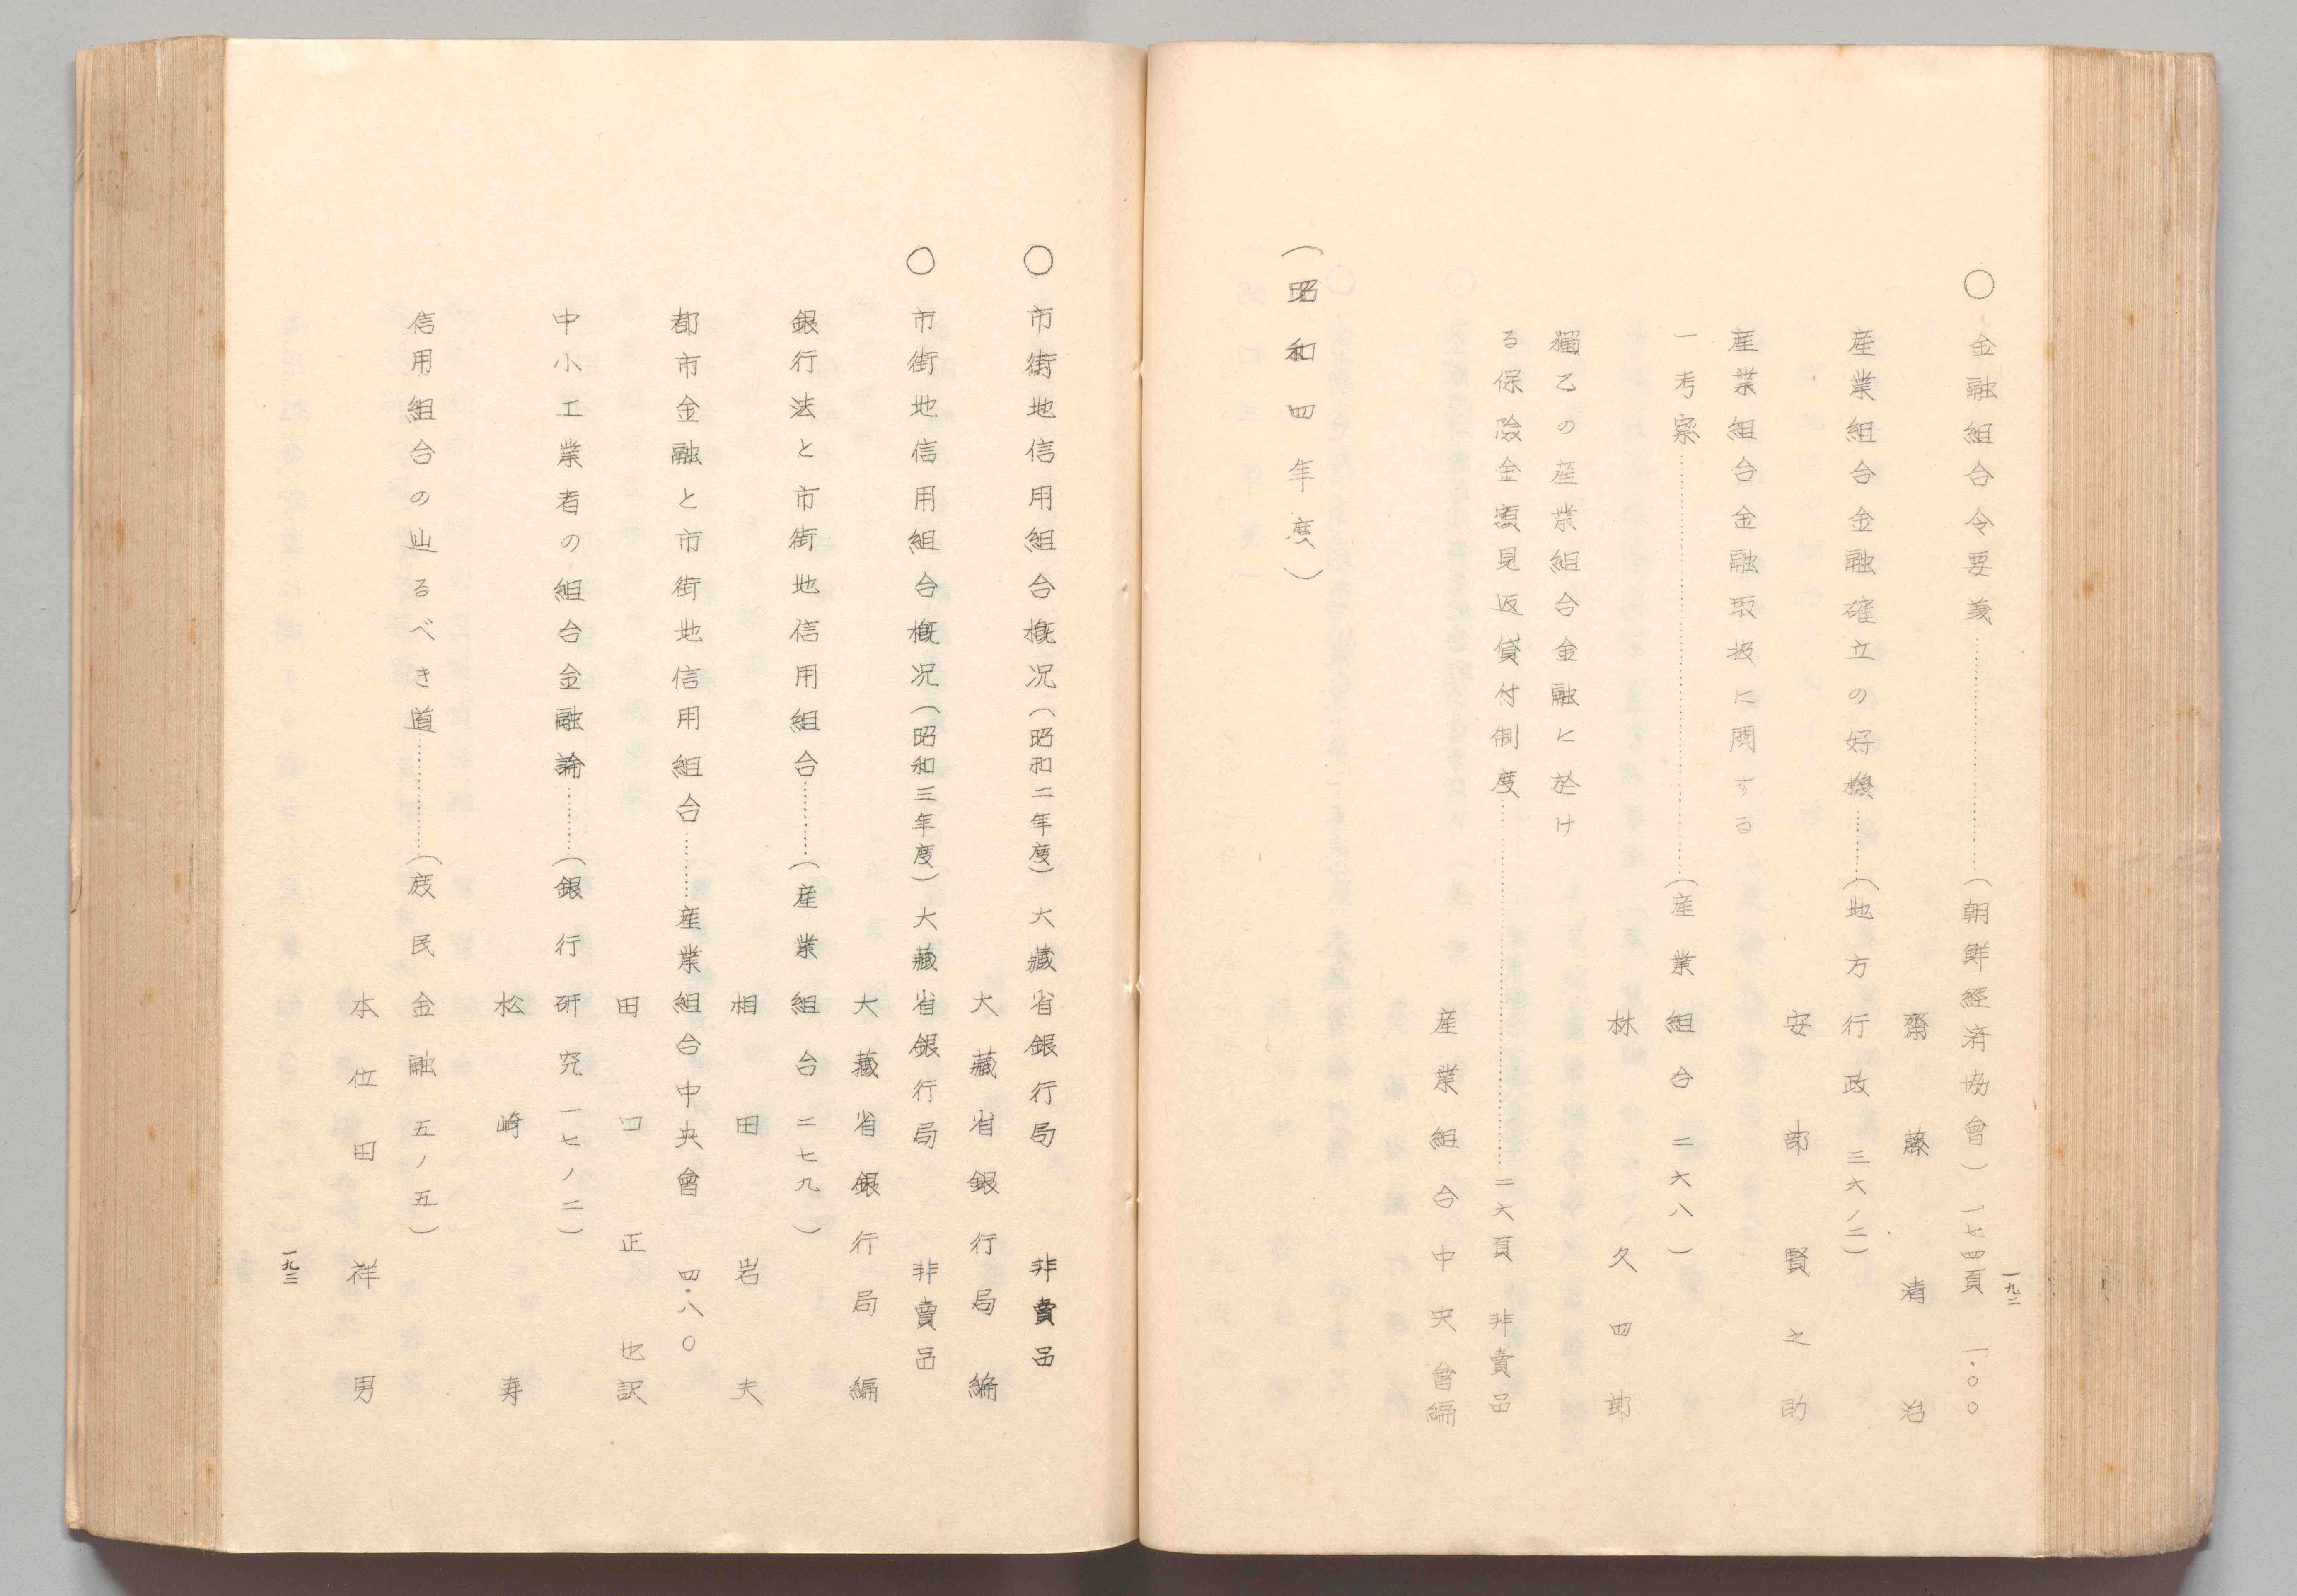 一九二
○金融組合令要義…………(朝鮮經済協會)一七四頁 一・〇〇
齋藤清治
産業組合金融確立の好機……(地方行政 三六ノ二)
安部賢之助
産業組合金融取扱に関する
一考察…………(産業組合 二六八)
林久四郎
獨乙の産業組合金融に於け
る保險金額見返貸付制度…………二六頁 非賣品
産業組合中央會編
(昭和四年度)
○市街地信用組合概况(昭和二年度)大藏省銀行局 非賣品
大藏省銀行局編
○市街地信用組合概况(昭和三年度)大藏省銀行局 非賣品
大藏省銀行局編
銀行法と市街地信用組合……(産業組合 二七九)
相田岩夫
都市金融と市街地信用組合……産業組合中央會 四・八〇
田口正也訳
中小工業者の組合金融論……(銀行研究 一七ノ二)
松崎寿
信用組合の辿るべき道………(庶民金融 五ノ五)
本位田祥男
一九三